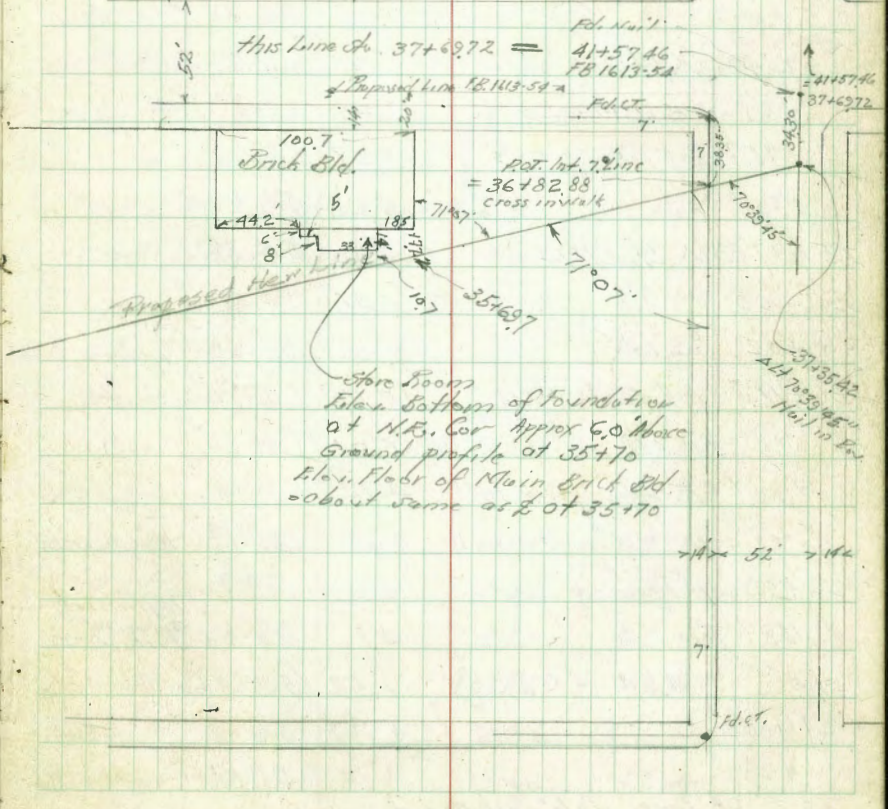 52'
this Line Sta. 37+69.72 =
Fd. Nail
41+57.46
FB 1613-54
Proposed Line F.B. 1613-54
= 41+57.46
37+69.72
Fd. C.T.
7'
14'
20'
100.7
Brick Bld.
7'
38.35
34.30
P.O.T. Int. 7' Line
= 36+82.88
cross in walk
5'
44.2'
6'
8'
33'
18.5
71°07'
71°07'
70°39'45"
Proposed New Line
10.7
35+69.7
37+35.42
Δ Lt 70°39'45"
Nail in
Store Room
Elev. Bottom of Foundation
at N.E. Cor Approx 6.0' Above
Ground profile at 35+70
Elev. Floor of Main Brick Bld.
about same as ℄ at 35+70
14' 52' 14
7'
Fd. C.T.